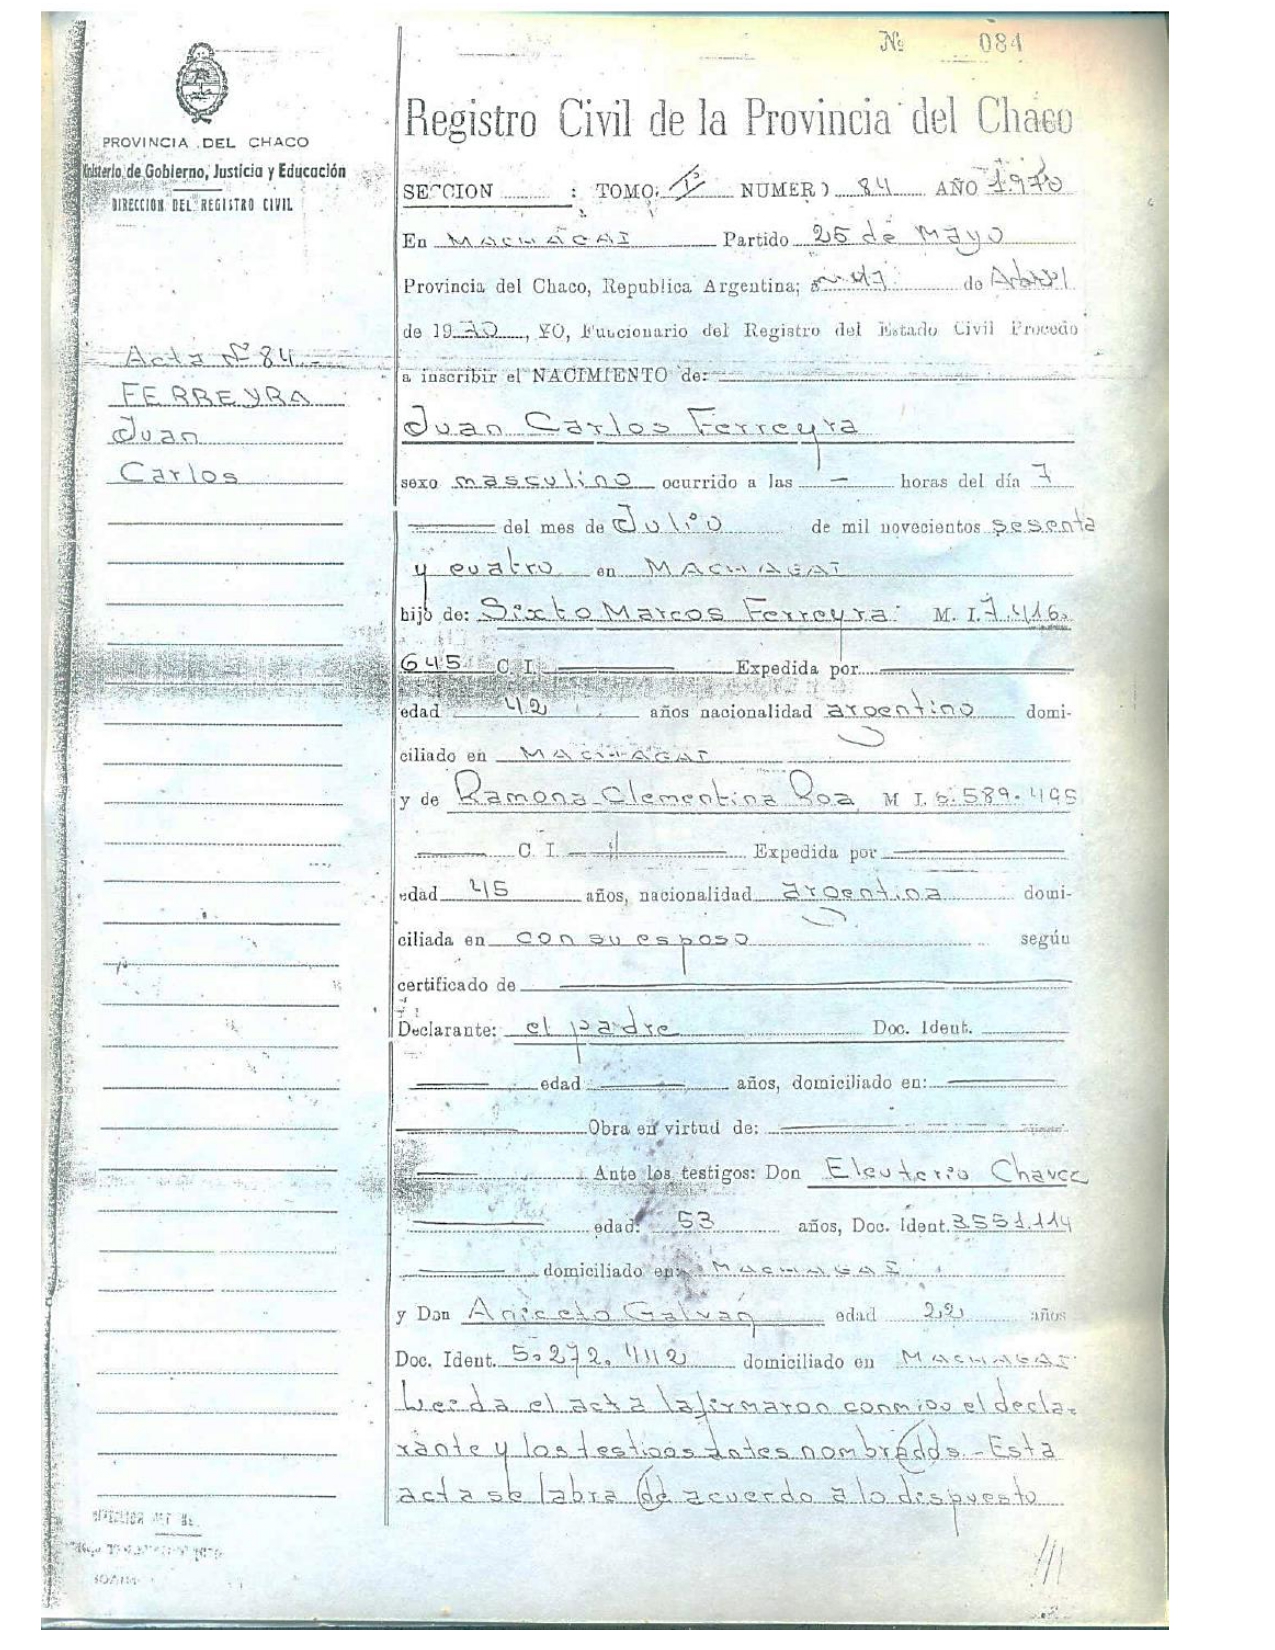 Nº 084
PROVINCIA DEL CHACO
Ministerio de Gobierno, Justicia y Educación
DIRECCION DEL REGISTRO CIVIL
Acta Nº 84.-
FERREYRA
Juan
Carlos
Registro Civil de la Provincia del Chaco
SECCION : TOMO: I NUMERO 84 AÑO 1970
En MACHAGAI Partido 25 de Mayo
Provincia del Chaco, Republica Argentina; a de Abril
de 1970, YO, Funcionario del Registro del Estado Civil Procedo
a inscribir el NACIMIENTO de:
Juan Carlos Ferreyra
sexo masculino ocurrido a las — horas del día 7
del mes de Julio de mil novecientos sesenta
y cuatro en MACHAGAI
hijo de: Sixto Marcos Ferreyra M. I. 7.416.
645 C. I. Expedida por
edad 42 años nacionalidad argentino domi-
ciliado en MACHAGAI
y de Ramona Clementina Roa M I. 6.589.495
C. I. Expedida por
edad 45 años, nacionalidad argentina domi-
ciliada en con su esposo según
certificado de
Declarante: el padre Doc. Ident.
edad años, domiciliado en:
Obra en virtud de:
Ante los testigos: Don Eleuterio Chavez
edad: 53 años, Doc. Ident. 3.551.114
domiciliado en: MACHAGAI
y Don Aniceto Galvan edad 22 años
Doc. Ident. 5.272.442 domiciliado en MACHAGAI
Leida el acta la firmaron conmigo el decla-
rante y los testigos antes nombrados.- Esta
acta se labra de acuerdo a lo dispuesto
///